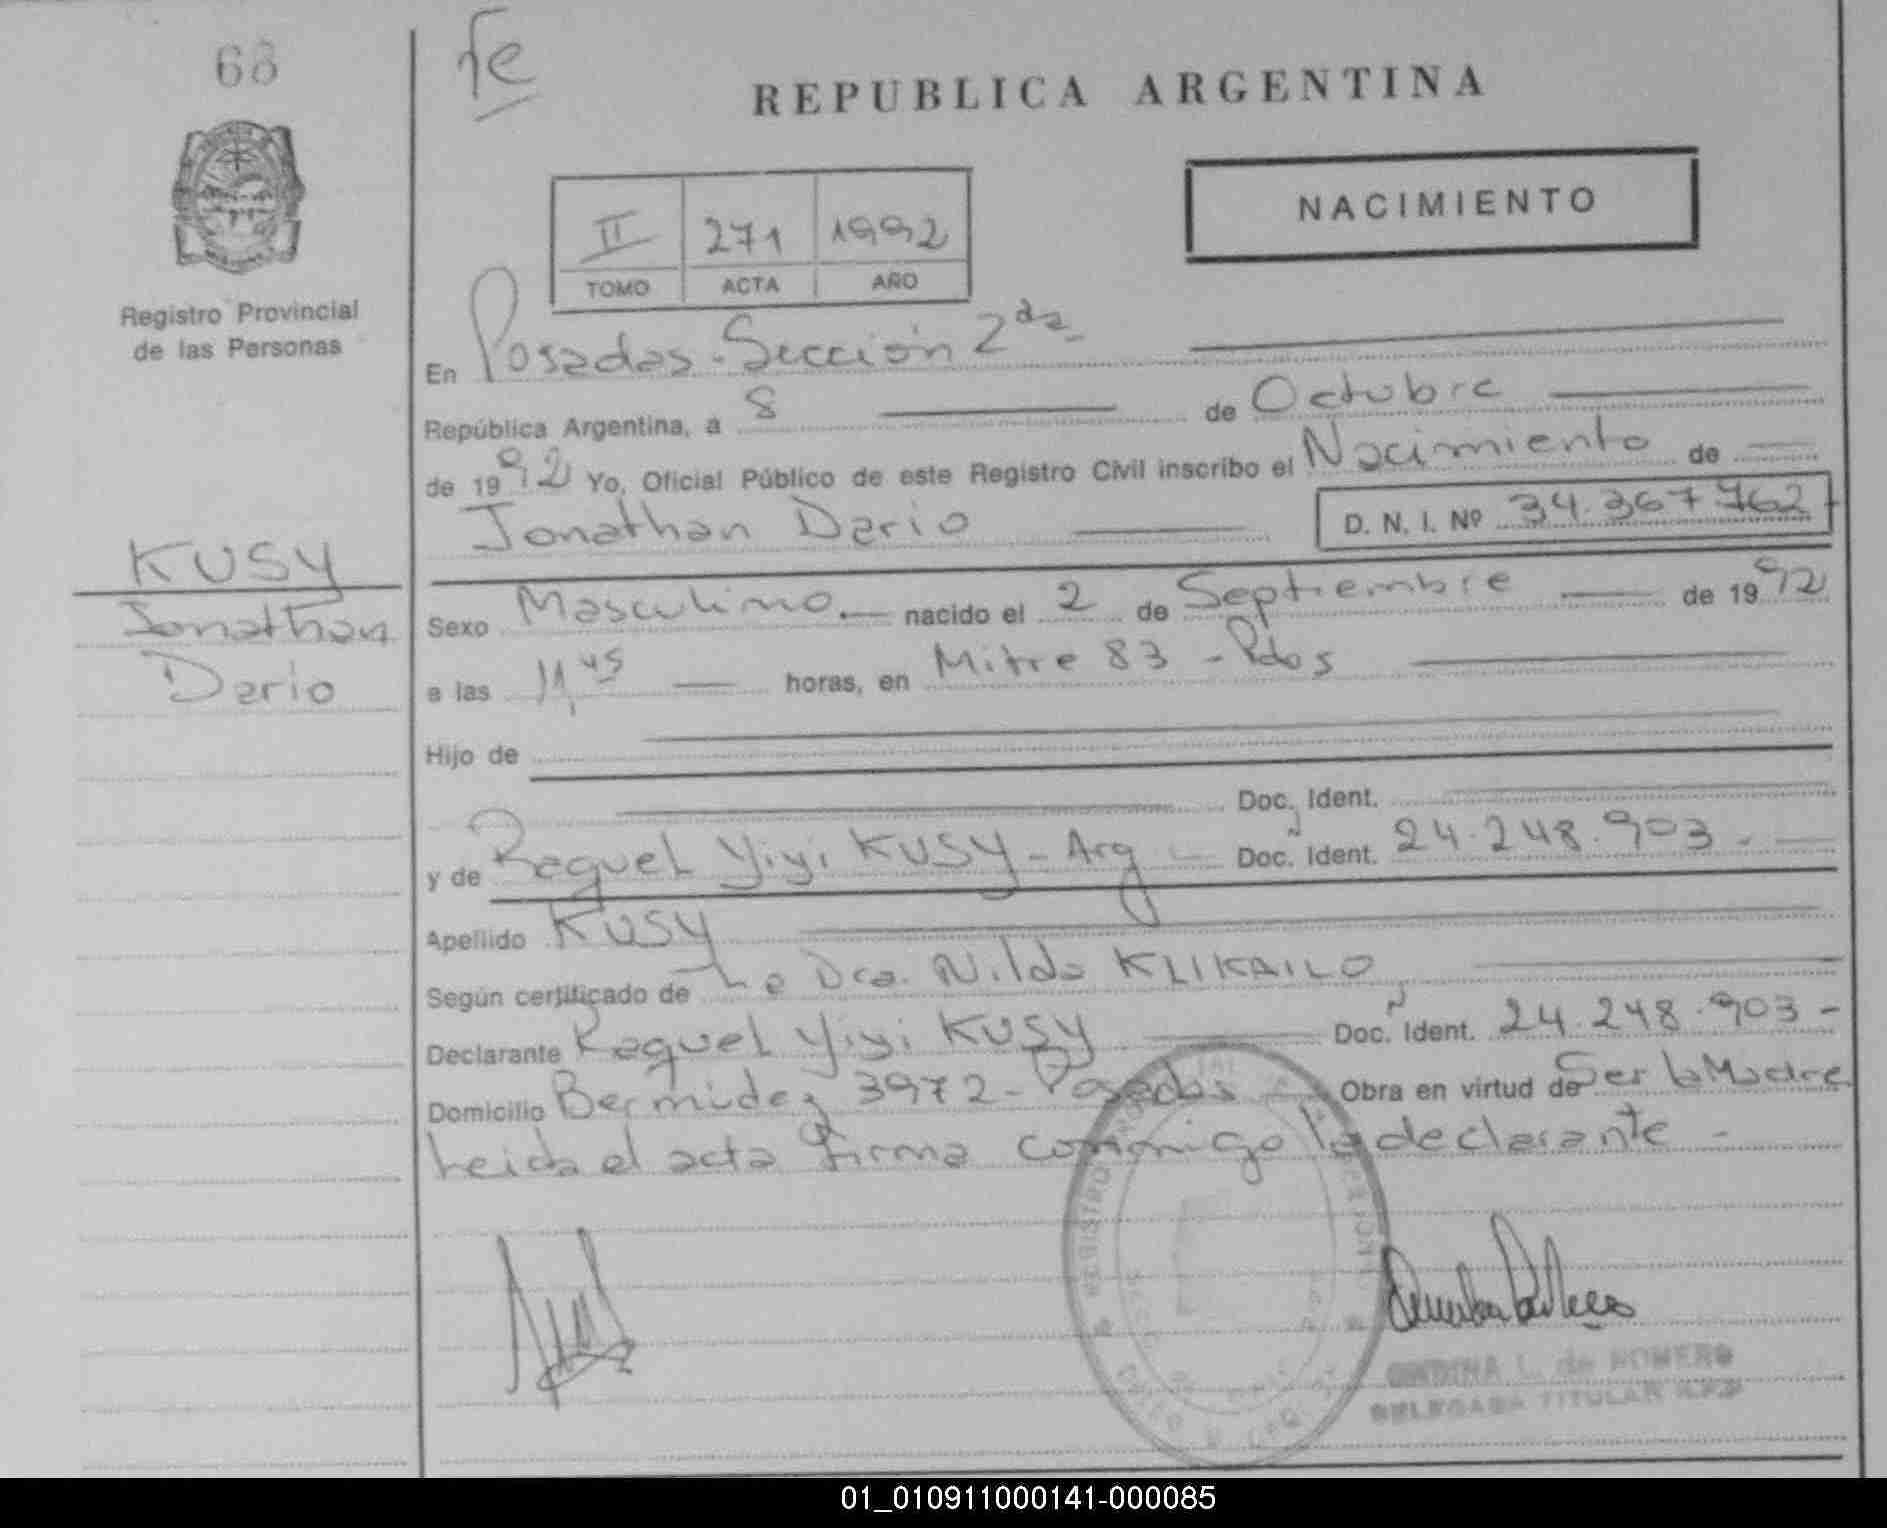 68
fe
REPUBLICA ARGENTINA
NACIMIENTO
II 271 1992
TOMO ACTA AÑO
Registro Provincial
de las Personas
En Posadas - Sección 2da -
República Argentina, a 8 de Octubre
de 1992 Yo, Oficial Público de este Registro Civil inscribo el Nacimiento de
Jonathan Dario D. N. I. Nº 34.367 762
KUSY
Jonathan
Dario
Sexo Masculino. nacido el 2 de Septiembre de 1992
a las 11,45 horas, en Mitre 83 - Pdas
Hijo de
Doc. Ident.
y de Raquel Yiyi KUSY - Arg Doc. Ident. 24.248.903.-
Apellido KUSY
Según certificado de La Dra. Nilda KLIKAILO
Declarante Raquel Yiyi KUSY Doc. Ident. 24.248.903 -
Domicilio Bermudez 3972 - Posadas Obra en virtud de Ser la Madre
Leida el acta firma conmigo la declarante -
REGISTRO
L. de ROMERO
DELEGADA TITULAR
01_010911000141-000085